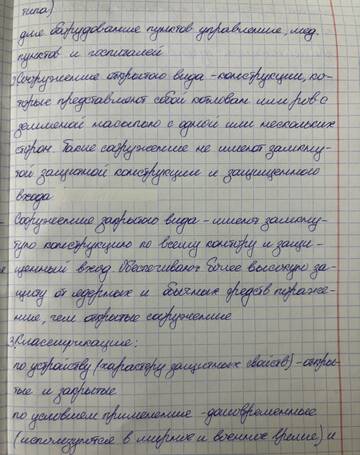 типа)
для оборудование пунктов управление, мед.
пунктов и госпиталей
Сооружение открытого вида - конструкции, ко-
торые представляют собой котлован или ров с
земляной насыпью с одной или нескольких
сторон. Такие сооружение не имеют замкну-
той защитной конструкции и защищенного
входа
Сооружение закрытого вида - имеют замкну-
тую конструкцию по всему контуру и защи-
щенный вход. Обеспечивают более высокую за-
щиту от ядерных и обычных средств пораже-
ние, чем открытые сооружение
3. Классификация:
по устройству (характеру защитных свойств) - откры-
тые и закрытые
по условием применение - долговременные
(используются в мирное и военное время) и